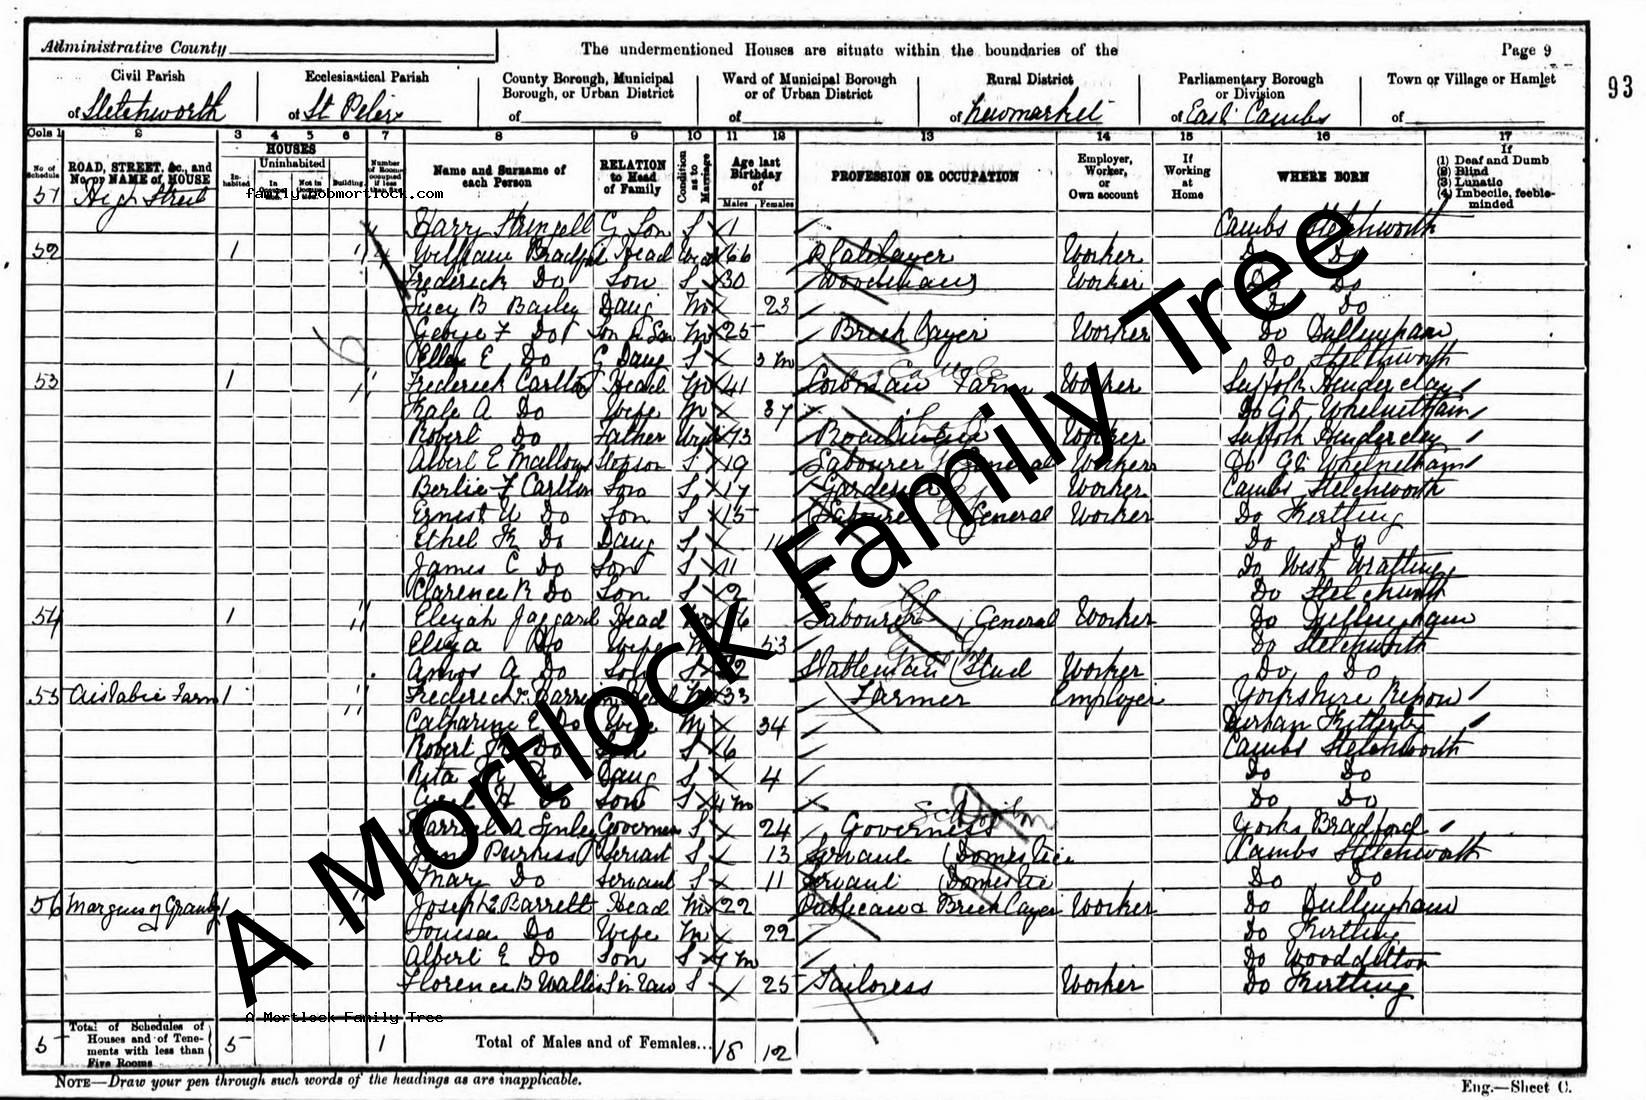 Administrative County
The undermentioned Houses are situate within the boundaries of the
Page 9
93
Civil Parish
of Stetchworth
Ecclesiastical Parish
of St Peters
County Borough, Municipal Borough, or Urban District
of
Ward of Municipal Borough or of Urban District
of
Rural District
of Newmarket
Parliamentary Borough or Division
of East Cambs
Town or Village or Hamlet
of
Cols 1 2 3 4 5 6 7 8 9 10 11 12 13 14 15 16 17
No of Schedule
ROAD, STREET, &c., and No. or NAME of HOUSE
HOUSES
Inhabited
Uninhabited
Building
Name and Surname of each Person
RELATION to Head of Family
Condition as to Marriage
Age last Birthday of
Males Females
PROFESSION OR OCCUPATION
Employer, Worker, or Own account
If Working at Home
WHERE BORN
If
(1) Deaf and Dumb
(2) Blind
(3) Lunatic
(4) Imbecile, feeble-minded
family.bobmortlock.com
51 High Street
Harry G Son S 1 Cambs Stetchworth
52 1 William Head 66 Platelayer Worker Do Do
Frederick Do Son S 30 Woodman Worker Do Do
Lucy B Bailey Daug M 23 Do Do
George F Do Son in Law M 25 Brick layer Worker Do Dullingham
Ellen E Do G Daug S 3 m Do Stetchworth
53 1 Frederick Carlton Head M 41 Cowman Farm Worker Suffolk Hinderclay
Kate A Do Wife M 37 Do Gt Whelnetham
Robert Do Father 73 Worker Suffolk Hinderclay
Albert E Mallows Stepson S 19 Labourer General Worker Do Gt Whelnetham
Bertie F Carlton Son S 17 Gardener Worker Cambs Stetchworth
Ernest Do Son S 15 Labourer General Worker Do Kirtling
Ethel K Do Daug S Do Do
James C Do Son S 11 Do West Wratting
Clarence R Do Son S 2 Do Stetchworth
54 1 Elijah Jaggard Head Labourer General Worker Do Dullingham
Eliza Do Wife 53 Do Stetchworth
Amos A Do Son Stableman (Stud Worker Do Do
55 Farm 1 Head 33 Farmer Employer Yorkshire Ripon
Catharine E Do Wife M 34
Robert Do Son S 6 Cambs Stetchworth
Rita Daug S 4 Do Do
Cecil H Do Son S 4 m Do Do
A Governess S 24 Governess Yorks Bradford
School
Jane Purkiss Servant S 13 Servant (Domestic Cambs Stetchworth
Mary Do Servant S 11 Servant (Domestic Do Do
56 Marquis of Granby 1 Joseph E Barrett Head M 22 Publican & Brick layer Worker Do Dullingham
Louisa Do Wife M 22 Do Kirtling
Albert E Do Son S 4 m Do Woodditton
Florence B Wallis S in Law S 25 Tailoress Worker Do Kirtling
A Mortlock Family Tree
A Mortlock Family Tree
5 Total of Schedules of Houses and of Tenements with less than Five Rooms 5 1 Total of Males and of Females... 18 12
NOTE—Draw your pen through such words of the headings as are inapplicable.
Eng.—Sheet C.